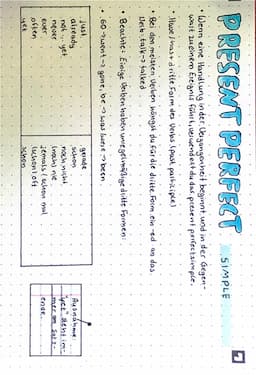 PRESENT PERFECT SIMPLE
• Wenn eine Handlung in der Vergangenheit beginnt und in der Gegen-
wart zu einem Ereignis führt, verwendest du das present perfect simple.
• Have / has + dritte Form des Verbs (past participle)
Bei den meisten Verben hängst du für die dritte Form ein -ed an das
Verb: talk → talked
• Beachte: Einige Verben haben unregelmäßige dritte Formen:
• GO → went → gone, be → was/were → been
just gerade
already schon
not ... yet noch nicht
never (noch) nie
ever jemals / schon mal
often (schon) oft
yet schon
Ausnahme:
"yet" steht im-
mer am Satz-
ende.